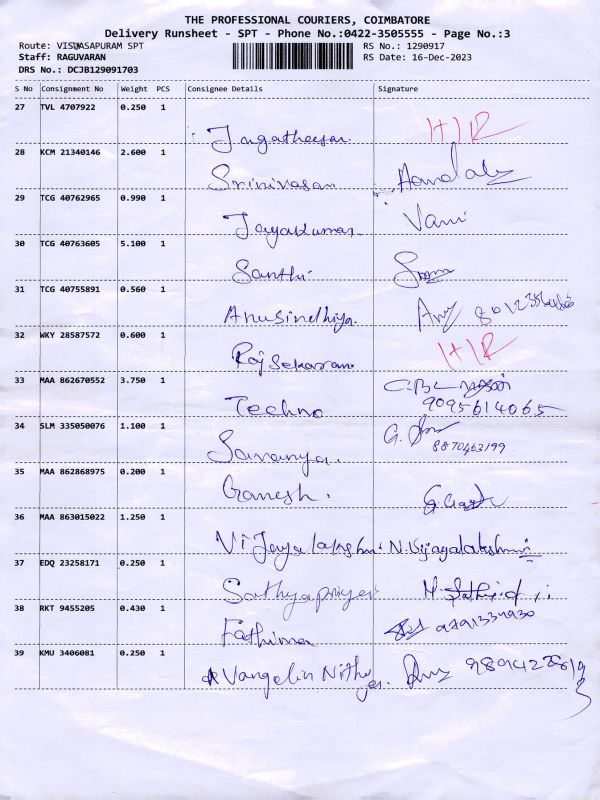 THE PROFESSIONAL COURIERS, COIMBATORE
Delivery Runsheet - SPT - Phone No.:0422-3505555 - Page No.:3
Route: VISWASAPURAM SPT RS No.: 1290917
Staff: RAGUVARAN RS Date: 16-Dec-2023
DRS No.: DCJB129091703
S No Consignment No Weight PCS Consignee Details Signature
27 TVL 4707922 0.250 1
Jagatheesan
28 KCM 21340146 2.600 1
Srinivasan
29 TCG 40762965 0.990 1
Jayakumar Vani
30 TCG 40763605 5.100 1
Santhi
31 TCG 40755891 0.560 1
Anusindhiya
32 WKY 28587572 0.600 1
Rajsekaran
33 MAA 862670552 3.750 1
Techno 9095614065
34 SLM 335050076 1.100 1
Saranya. 8870463199
35 MAA 862868975 0.200 1
Ganesh.
36 MAA 863015022 1.250 1
Vijayalakshmi N. Vijayalakshmi
37 EDQ 23258171 0.250 1
Sathyapriya
38 RKT 9455205 0.430 1
Fathima 9791334930
39 KMU 3406081 0.250 1
Vangelin Nithya